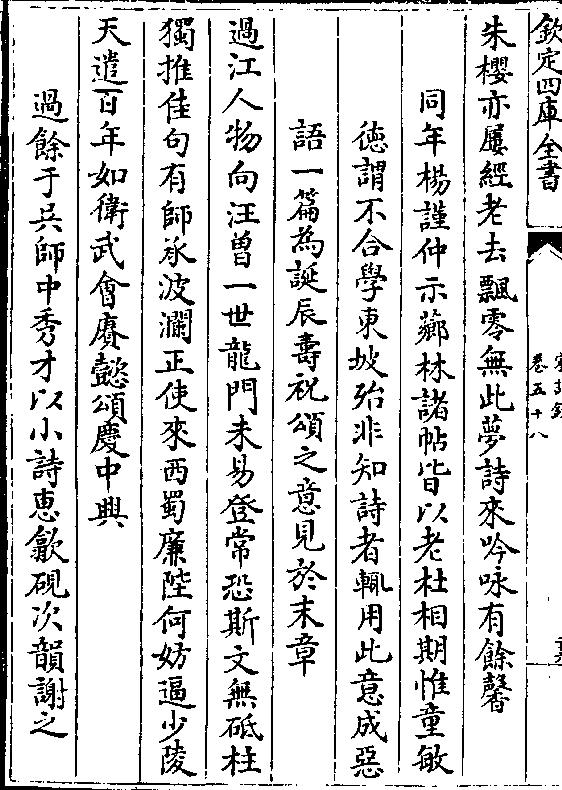 欽定四庫全書
卷五十八
朱櫻亦屢經老去飄零無此夢詩來吟咏有餘馨
同年楊謹仲示薌林諸帖皆以老杜相期惟童敏
徳謂不合學東坡殆非知詩者輒用此意成惡
語一篇為誕辰壽祝頌之意見於末章
過江人物向汪曾一世龍門未易登常恐斯文無砥柱
獨推佳句有師承波瀾正使來西蜀廉陛何妨逼少陵
天遣百年如衛武會賡懿頌慶中興
過餘于吳師中秀才以小詩恵歙硯次韻謝之